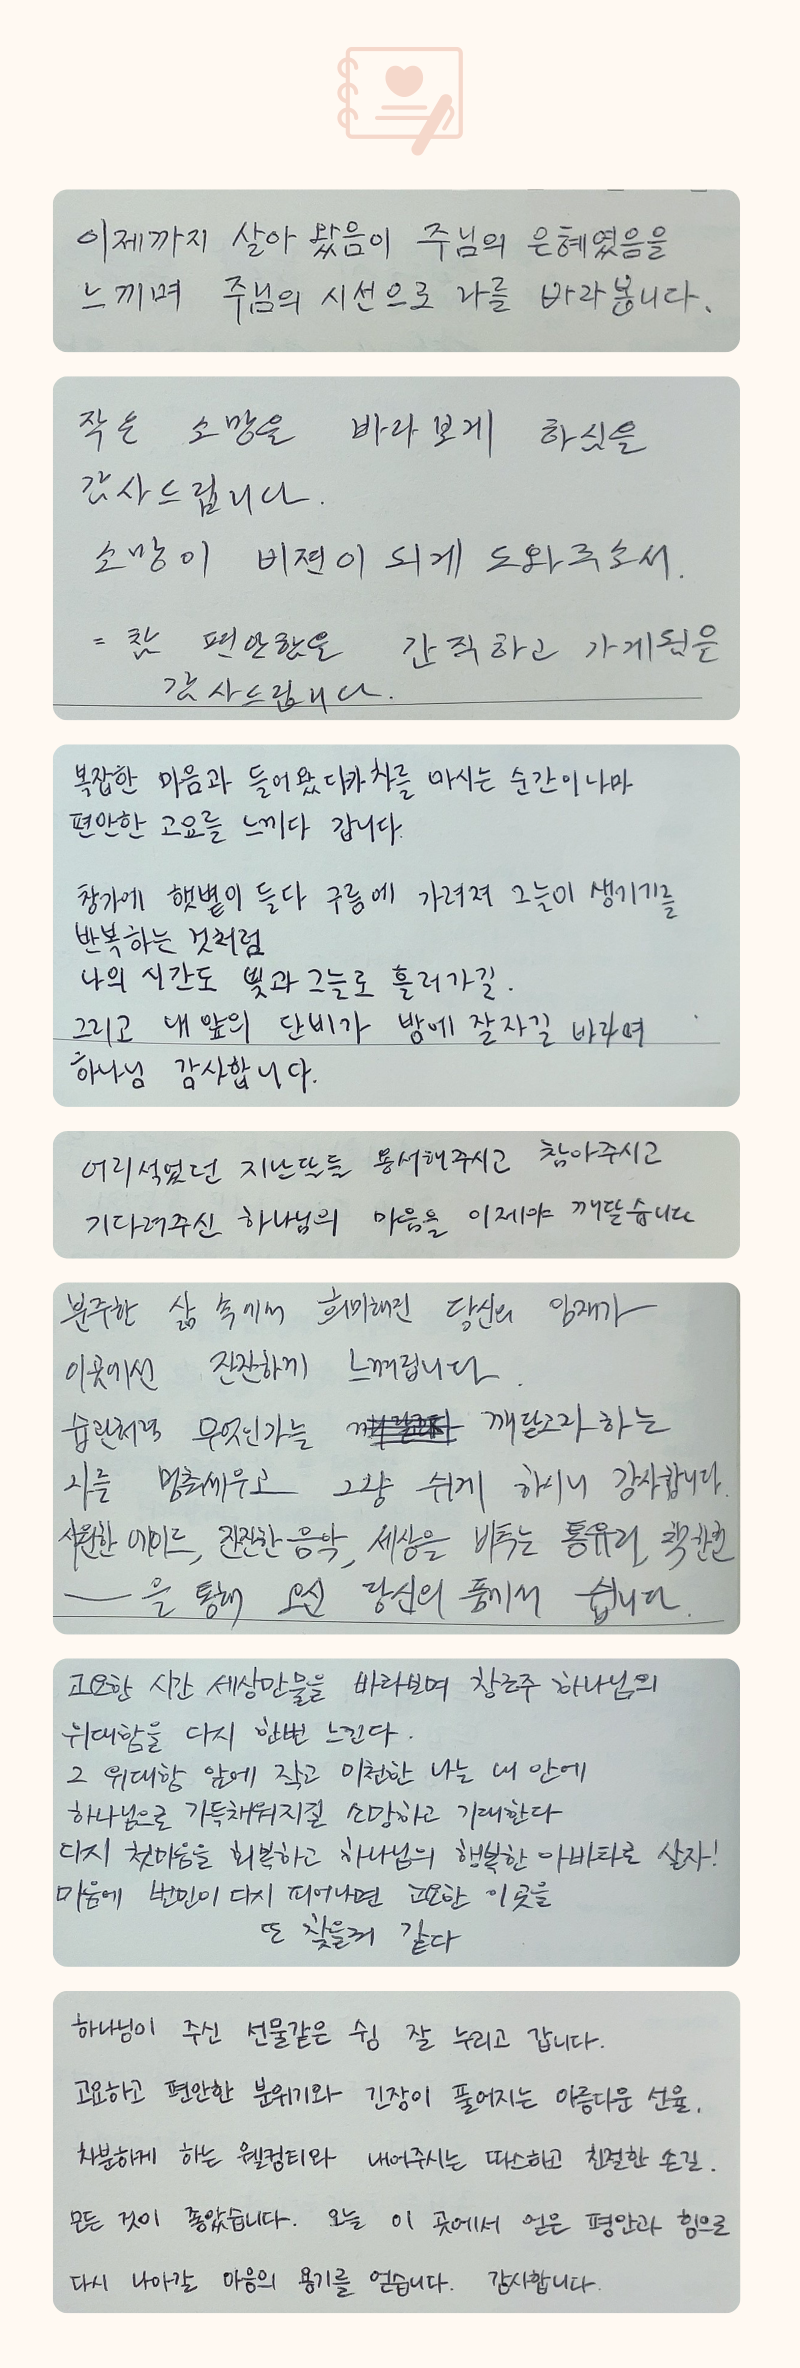 이제까지 살아 왔음이 주님의 은혜였음을
느끼며 주님의 시선으로 나를 바라봅니다.
작은 소망을 바라보게 하심을
감사드립니다.
소망이 비젼이 되게 도와주소서.
= 참 편안함을 간직하고 가게됨을
감사드립니다.
복잡한 마음과 들어왔다가 차를 마시는 순간이나마
편안한 고요를 느끼다 갑니다.
창가에 햇볕이 들다 구름에 가려져 그늘이 생기기를
반복하는 것처럼
나의 시간도 빛과 그늘로 흘러가길.
그리고 내 앞의 단비가 밤에 잘자길 바라며
하나님 감사합니다.
어리석었던 지난날들 용서해주시고 참아주시고
기다려주신 하나님의 마음을 이제야 깨닫습니다
분주한 삶 속에서 희미해진 당신의 임재가
이곳에선 잔잔하게 느껴집니다.
습관처럼 무엇인가를 깨달으려 하는
저를 멈춰세우고 그냥 쉬게 하시니 감사합니다.
시원한 에이드, 잔잔한 음악, 세상을 비추는 통유리, 책 한권
을 통해 오신 당신의 품에서 쉽니다.
고요한 시간 세상만물을 바라보며 창조주 하나님의
위대함을 다시 한번 느낀다.
그 위대함 앞에 작고 미천한 나는 내 안에
하나님으로 가득채워지길 소망하고 기대한다
다시 첫마음을 회복하고 하나님의 행복한 아바타로 살자!
마음에 번민이 다시 피어나면 고요한 이곳을
또 찾을거 같다
하나님이 주신 선물같은 쉼 잘 누리고 갑니다.
고요하고 편안한 분위기와 긴장이 풀어지는 아름다운 선율.
차분하게 하는 웰컴티와 내어주시는 따스하고 친절한 손길.
모든 것이 좋았습니다. 오늘 이 곳에서 얻은 평안과 힘으로
다시 나아갈 마음의 용기를 얻습니다. 감사합니다.